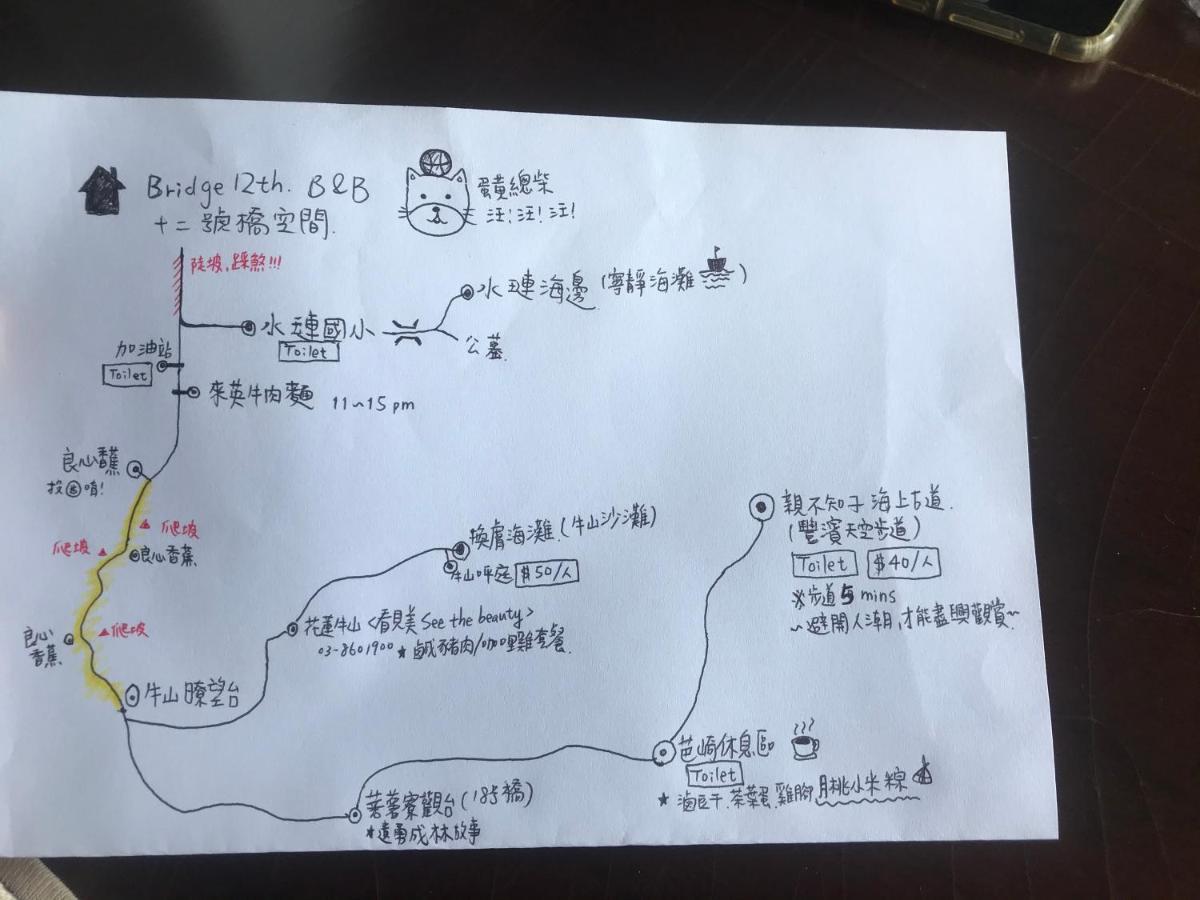 Bridge 12th. B&B
十二號橋空間.
蛋黃總柴
汪!汪!汪!
陡坡,踩煞!!!
水璉海邊(寧靜海灘)
水璉國小
Toilet
公墓.
加油站
Toilet
來英牛肉麵 11~15 pm
良心香蕉
投唷!
爬坡
爬坡
良心香蕉
爬坡
良心
香蕉
牛山瞭望台
換膚海灘.(牛山沙灘)
牛山呼庭 $50/人
花蓮牛山<看見美 See the beauty>
03-8601900 ★鹹豬肉/咖哩雞套餐.
親不知子海上古道.
(豐濱天空步道)
Toilet $40/人
※步道5 mins
~避開人潮,才能盡興觀賞~
芭崎休息區
Toilet
★滷豆干.茶葉蛋.雞腳.月桃小米粽
蕃薯寮觀台(18號橋)
*遠勇成林故事